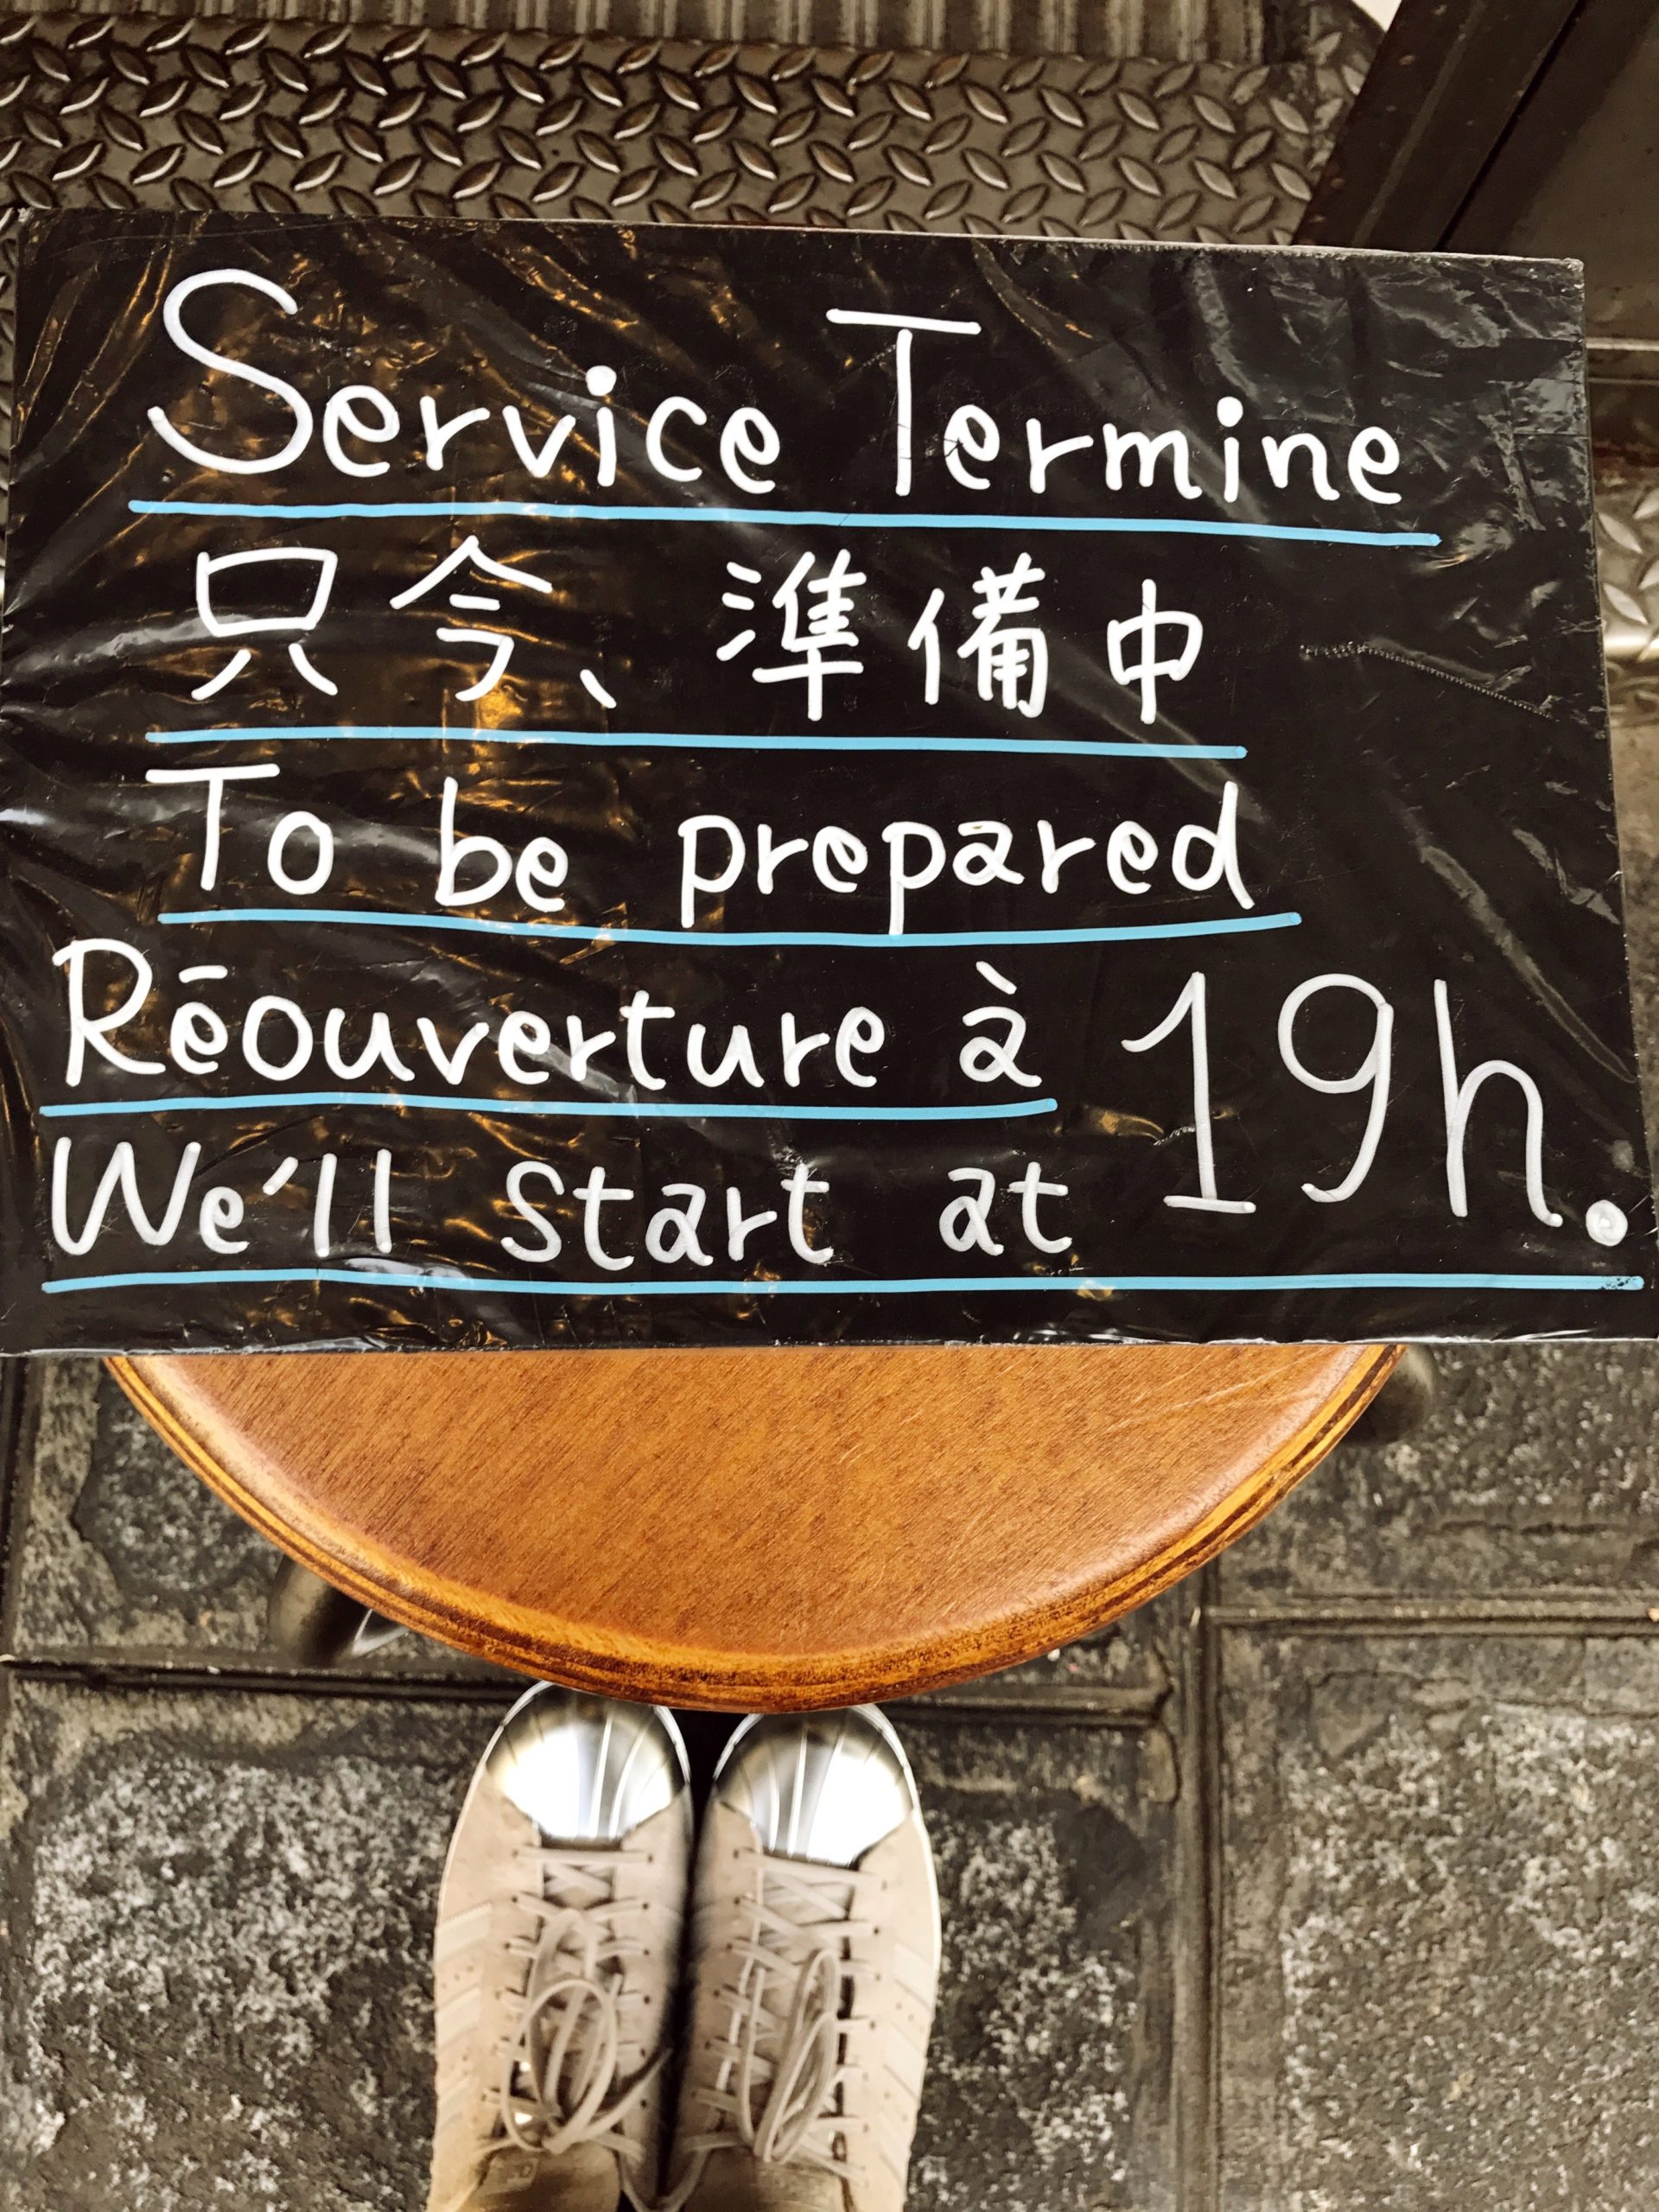 Service Termine
只今、準備中
To be prepared
Rēouverture à 19h.
We'll start at